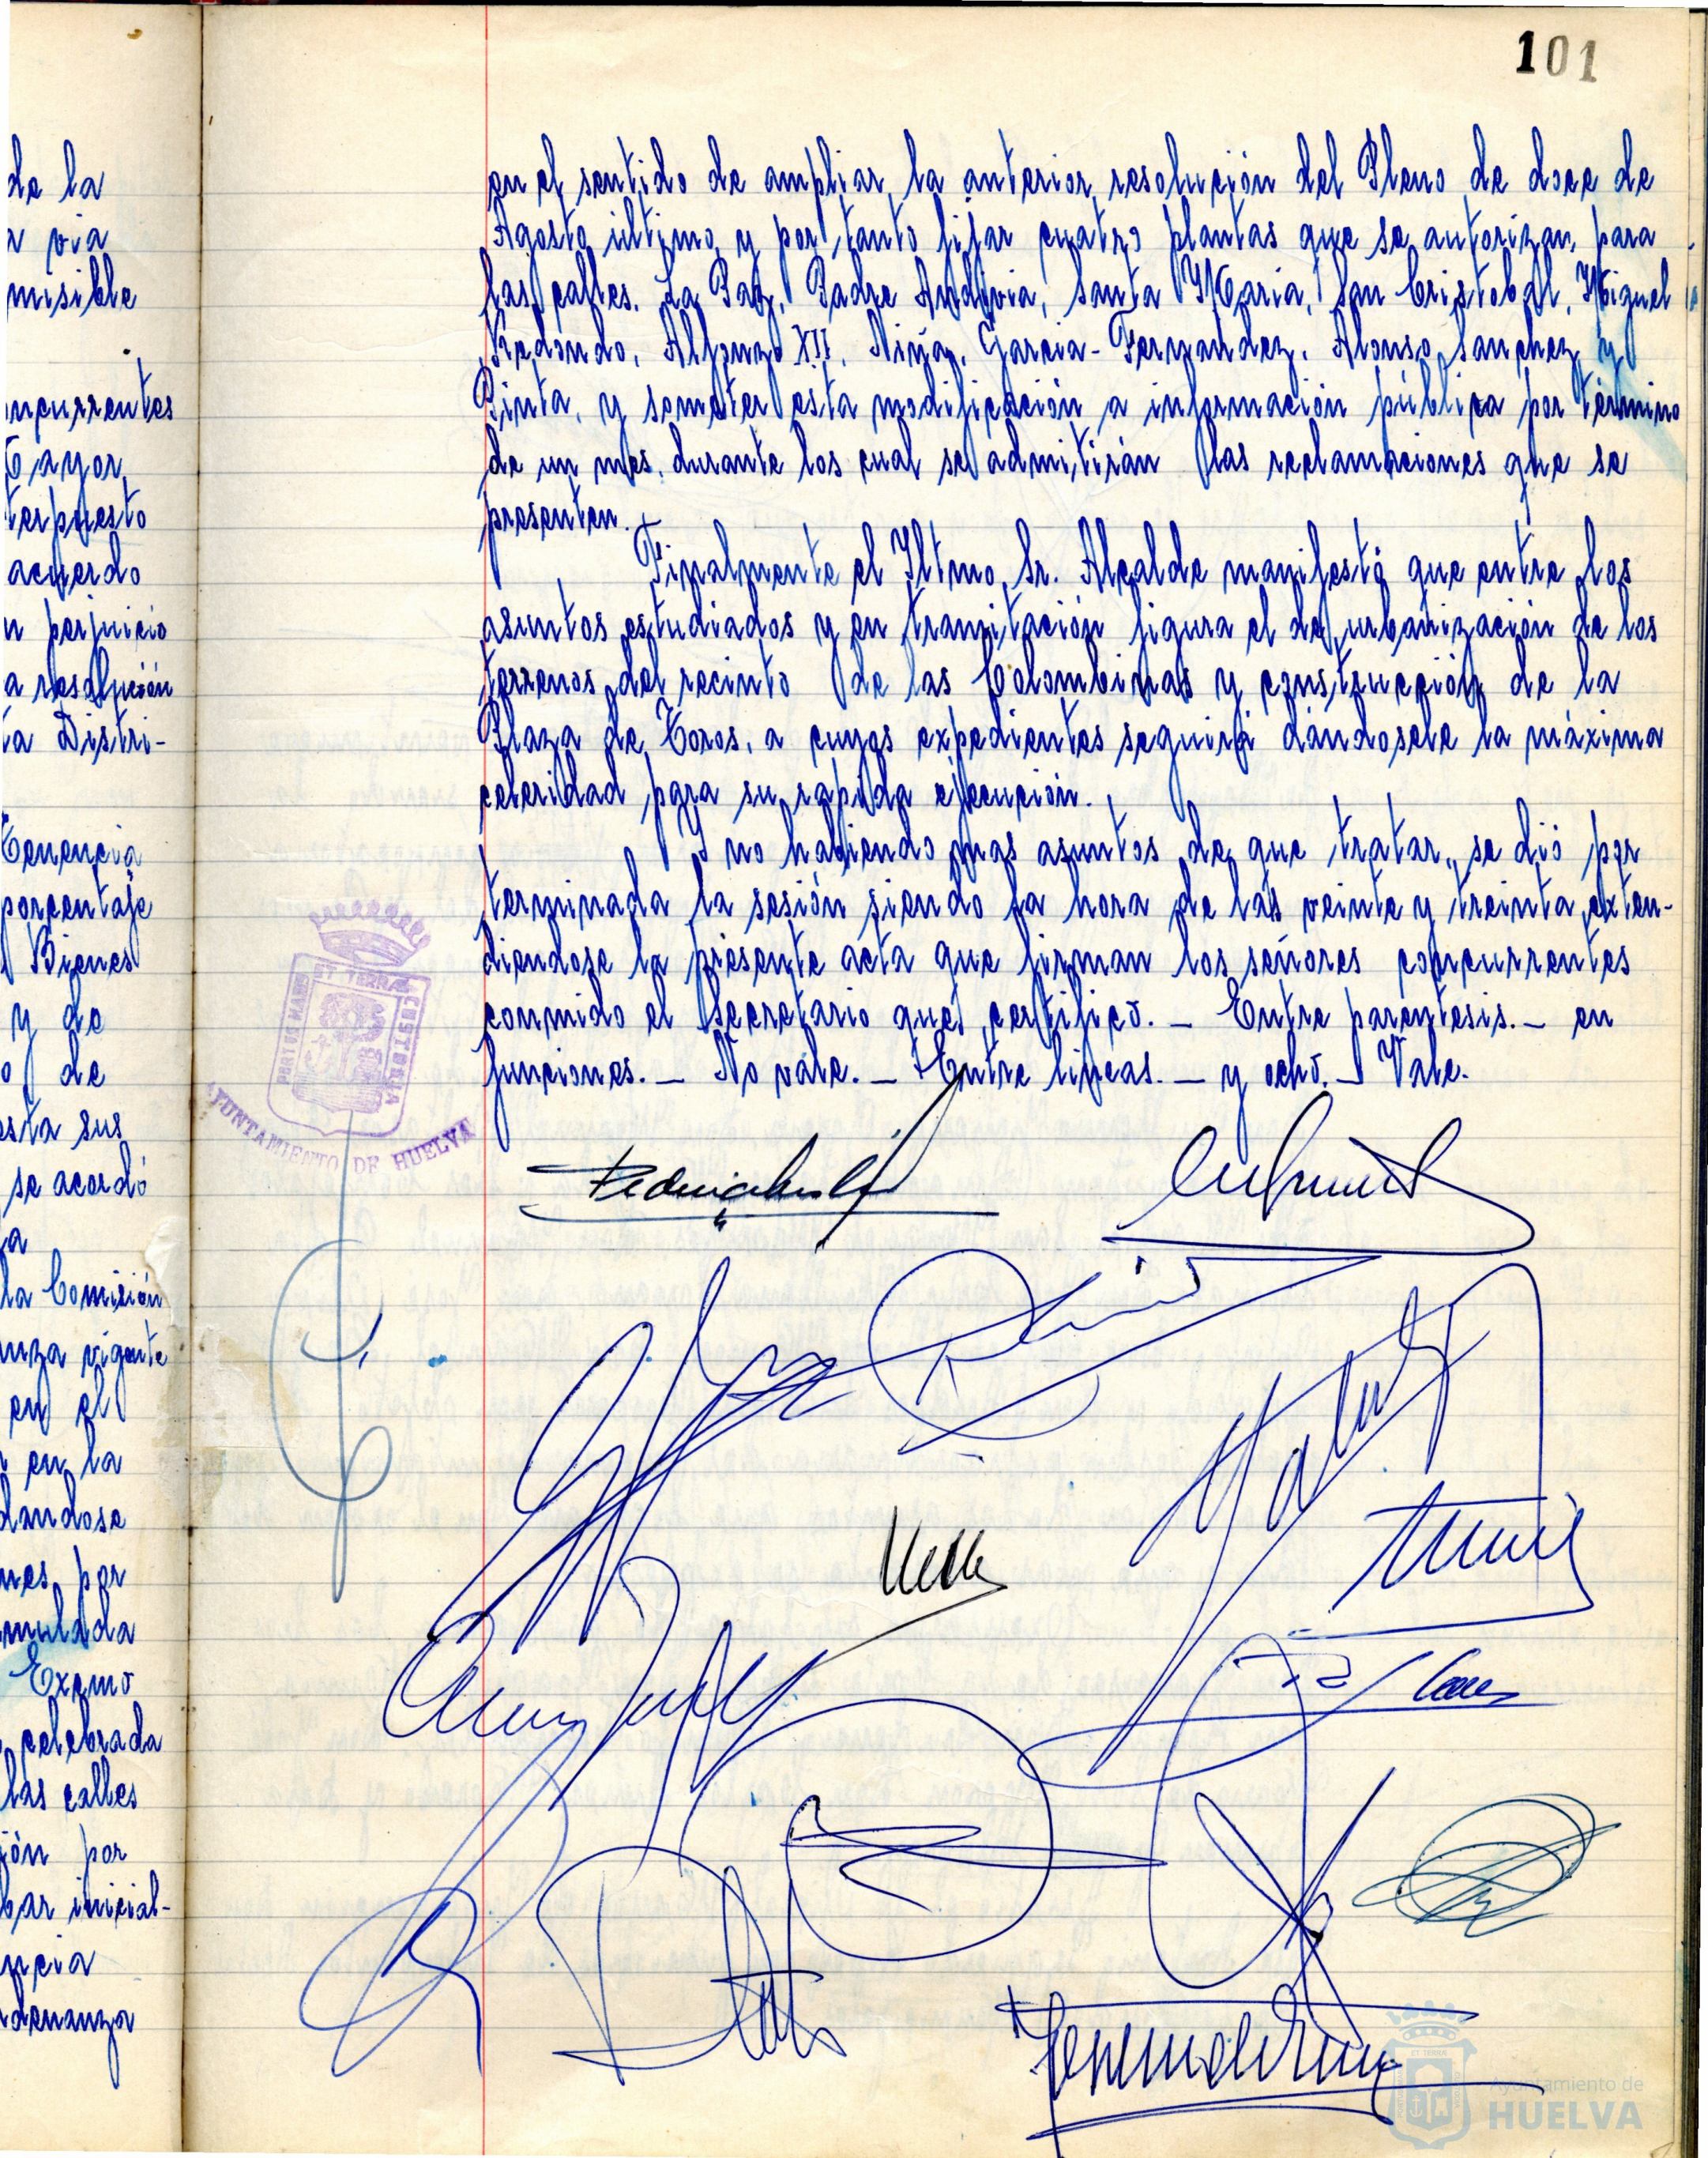 101
de la
vía
misible
ncurrentes
Cayor
terpuesto
acuerdo
n perjuicio
a resolución
ta Distri-
Tenencia
porcentaje
Bienes
y de
o de
esta sus
se acordó
a
la Comisión
nza vigente
en el
en la
dandose
nes por
mulada
Excmo
celebrada
las calles
ión por
bar inicial-
ncia
rdenanza
en el sentido de ampliar la anterior resolución del Pleno de doce de
Agosto último y por tanto fijar cuatro plantas que se autorizan para
las calles. La Paz, Padre Andivia, Santa Maria, San Cristobal, Miguel
Redondo, Alfonzo XII, Niña, Garcia-Fernandez, Alonso Sanchez y
Pinta, y someter esta modificación a información pública por término
de un mes, durante los cual se admitirán las reclamaciones que se
presenten.
Finalmente el Iltmo. Sr. Alcalde manifestó que entre los
asuntos estudiados y en tramitación figura el de urbanización de los
terrenos del recinto de las Colombinas y construcción de la
Plaza de Toros, a cuyos expedientes seguirá dándosele la máxima
celeridad para su rapida ejecución.
Y no habiendo mas asuntos de que tratar, se dió por
terminada la sesión siendo la hora de las veinte y treinta, exten-
diendose la presente acta que firman los señores concurrentes
conmido el Secretario que certifico. — Entre paréntesis. — en
funciones. — No vale. — Entre lineas. — y ocho. — Vale.
PORTUS MARIS ET TERRAE CUSTODIA
AYUNTAMIENTO DE HUELVA
Ayuntamiento de
HUELVA